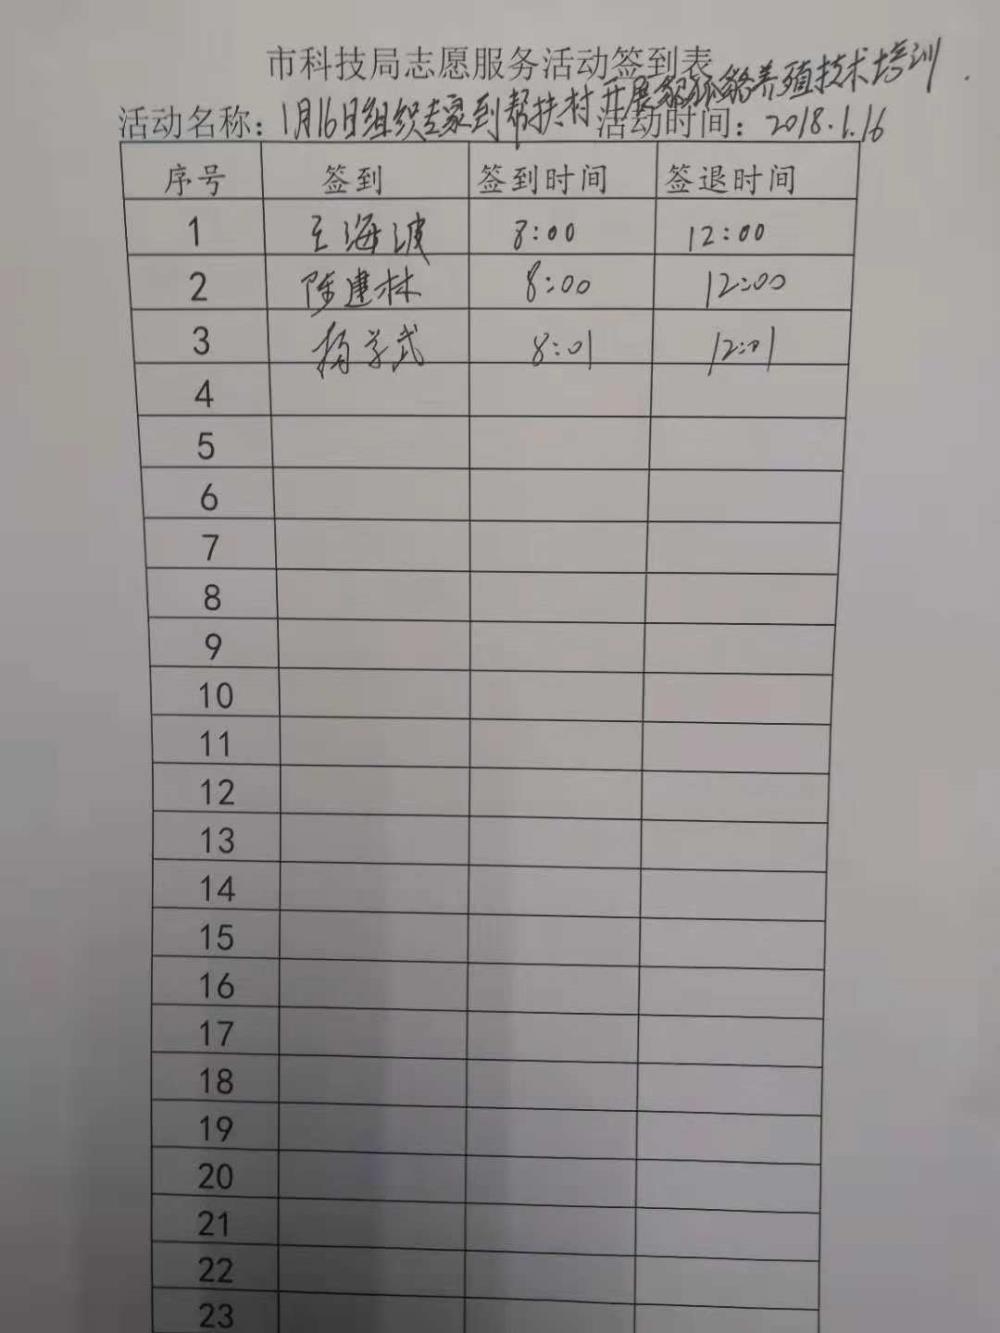 市科技局志愿服务活动签到表
活动名称：1月16日组织专家到帮扶村开展貂狐貉养殖技术培训 活动时间：2018.1.16
序号 签到 签到时间 签退时间
1 王海波 8:00 12:00
2 陈建林 8:00 12:00
3 杨学武 8:01 12:01
4
5
6
7
8
9
10
11
12
13
14
15
16
17
18
19
20
21
22
23